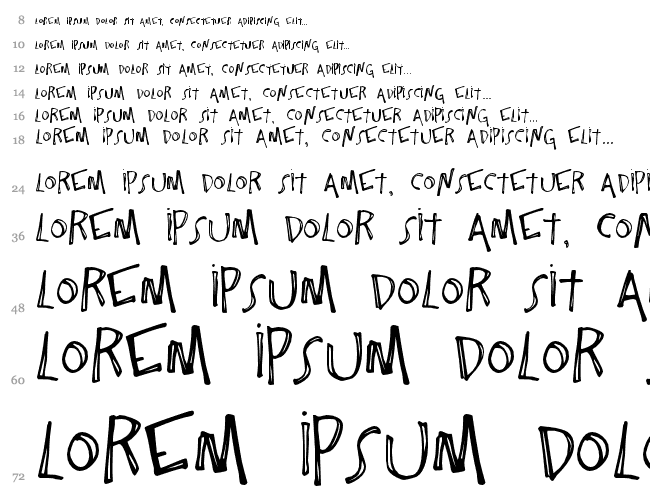 8 LOREM IPSUM DOLOR SIT AMET, CONSECTETUER ADIPISCING ELIT...
10 LOREM IPSUM DOLOR SIT AMET, CONSECTETUER ADIPISCING ELIT...
12 LOREM IPSUM DOLOR SIT AMET, CONSECTETUER ADIPISCING ELIT...
14 LOREM IPSUM DOLOR SIT AMET, CONSECTETUER ADIPISCING ELIT...
16 LOREM IPSUM DOLOR SIT AMET, CONSECTETUER ADIPISCING ELIT...
18 LOREM IPSUM DOLOR SIT AMET, CONSECTETUER ADIPISCING ELIT...
24 LOREM IPSUM DOLOR SIT AMET, CONSECTETUER ADIPI
36 LOREM IPSUM DOLOR SIT AMET, CON
48 LOREM IPSUM DOLOR SIT A
60 LOREM IPSUM DOLOR
72 LOREM IPSUM DOLO